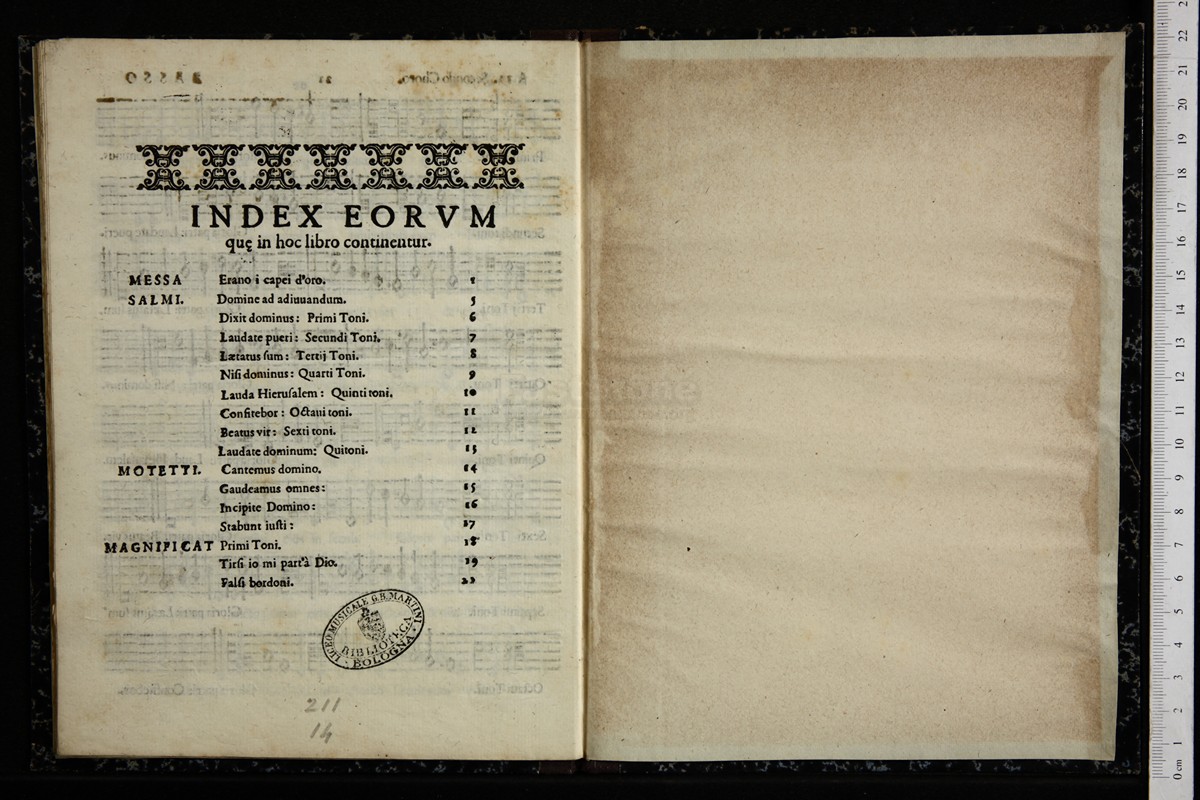 INDEX EORVM
quę in hoc libro continentur.
MESSA Erano i capei d'oro. 1
SALMI. Domine ad adiuuandum. 5
Dixit dominus: Primi Toni. 6
Laudate pueri: Secundi Toni. 7
Lætatus ſum: Tertij Toni. 8
Niſi dominus: Quarti Toni. 9
Lauda Hieruſalem: Quinti toni. 10
Confitebor: Octaui toni. 11
Beatus vir: Sexti toni. 12
Laudate dominum: Quitoni. 13
MOTETTI. Cantemus domino. 14
Gaudeamus omnes: 15
Incipite Domino: 16
Stabunt iuſti: 17
MAGNIFICAT Primi Toni. 18
Tirſi io mi part'à Dio. 19
Falſi bordoni. 22
LICEO MUSICALE G.B. MARTINI
BIBLIOTECA
BOLOGNA
211
14